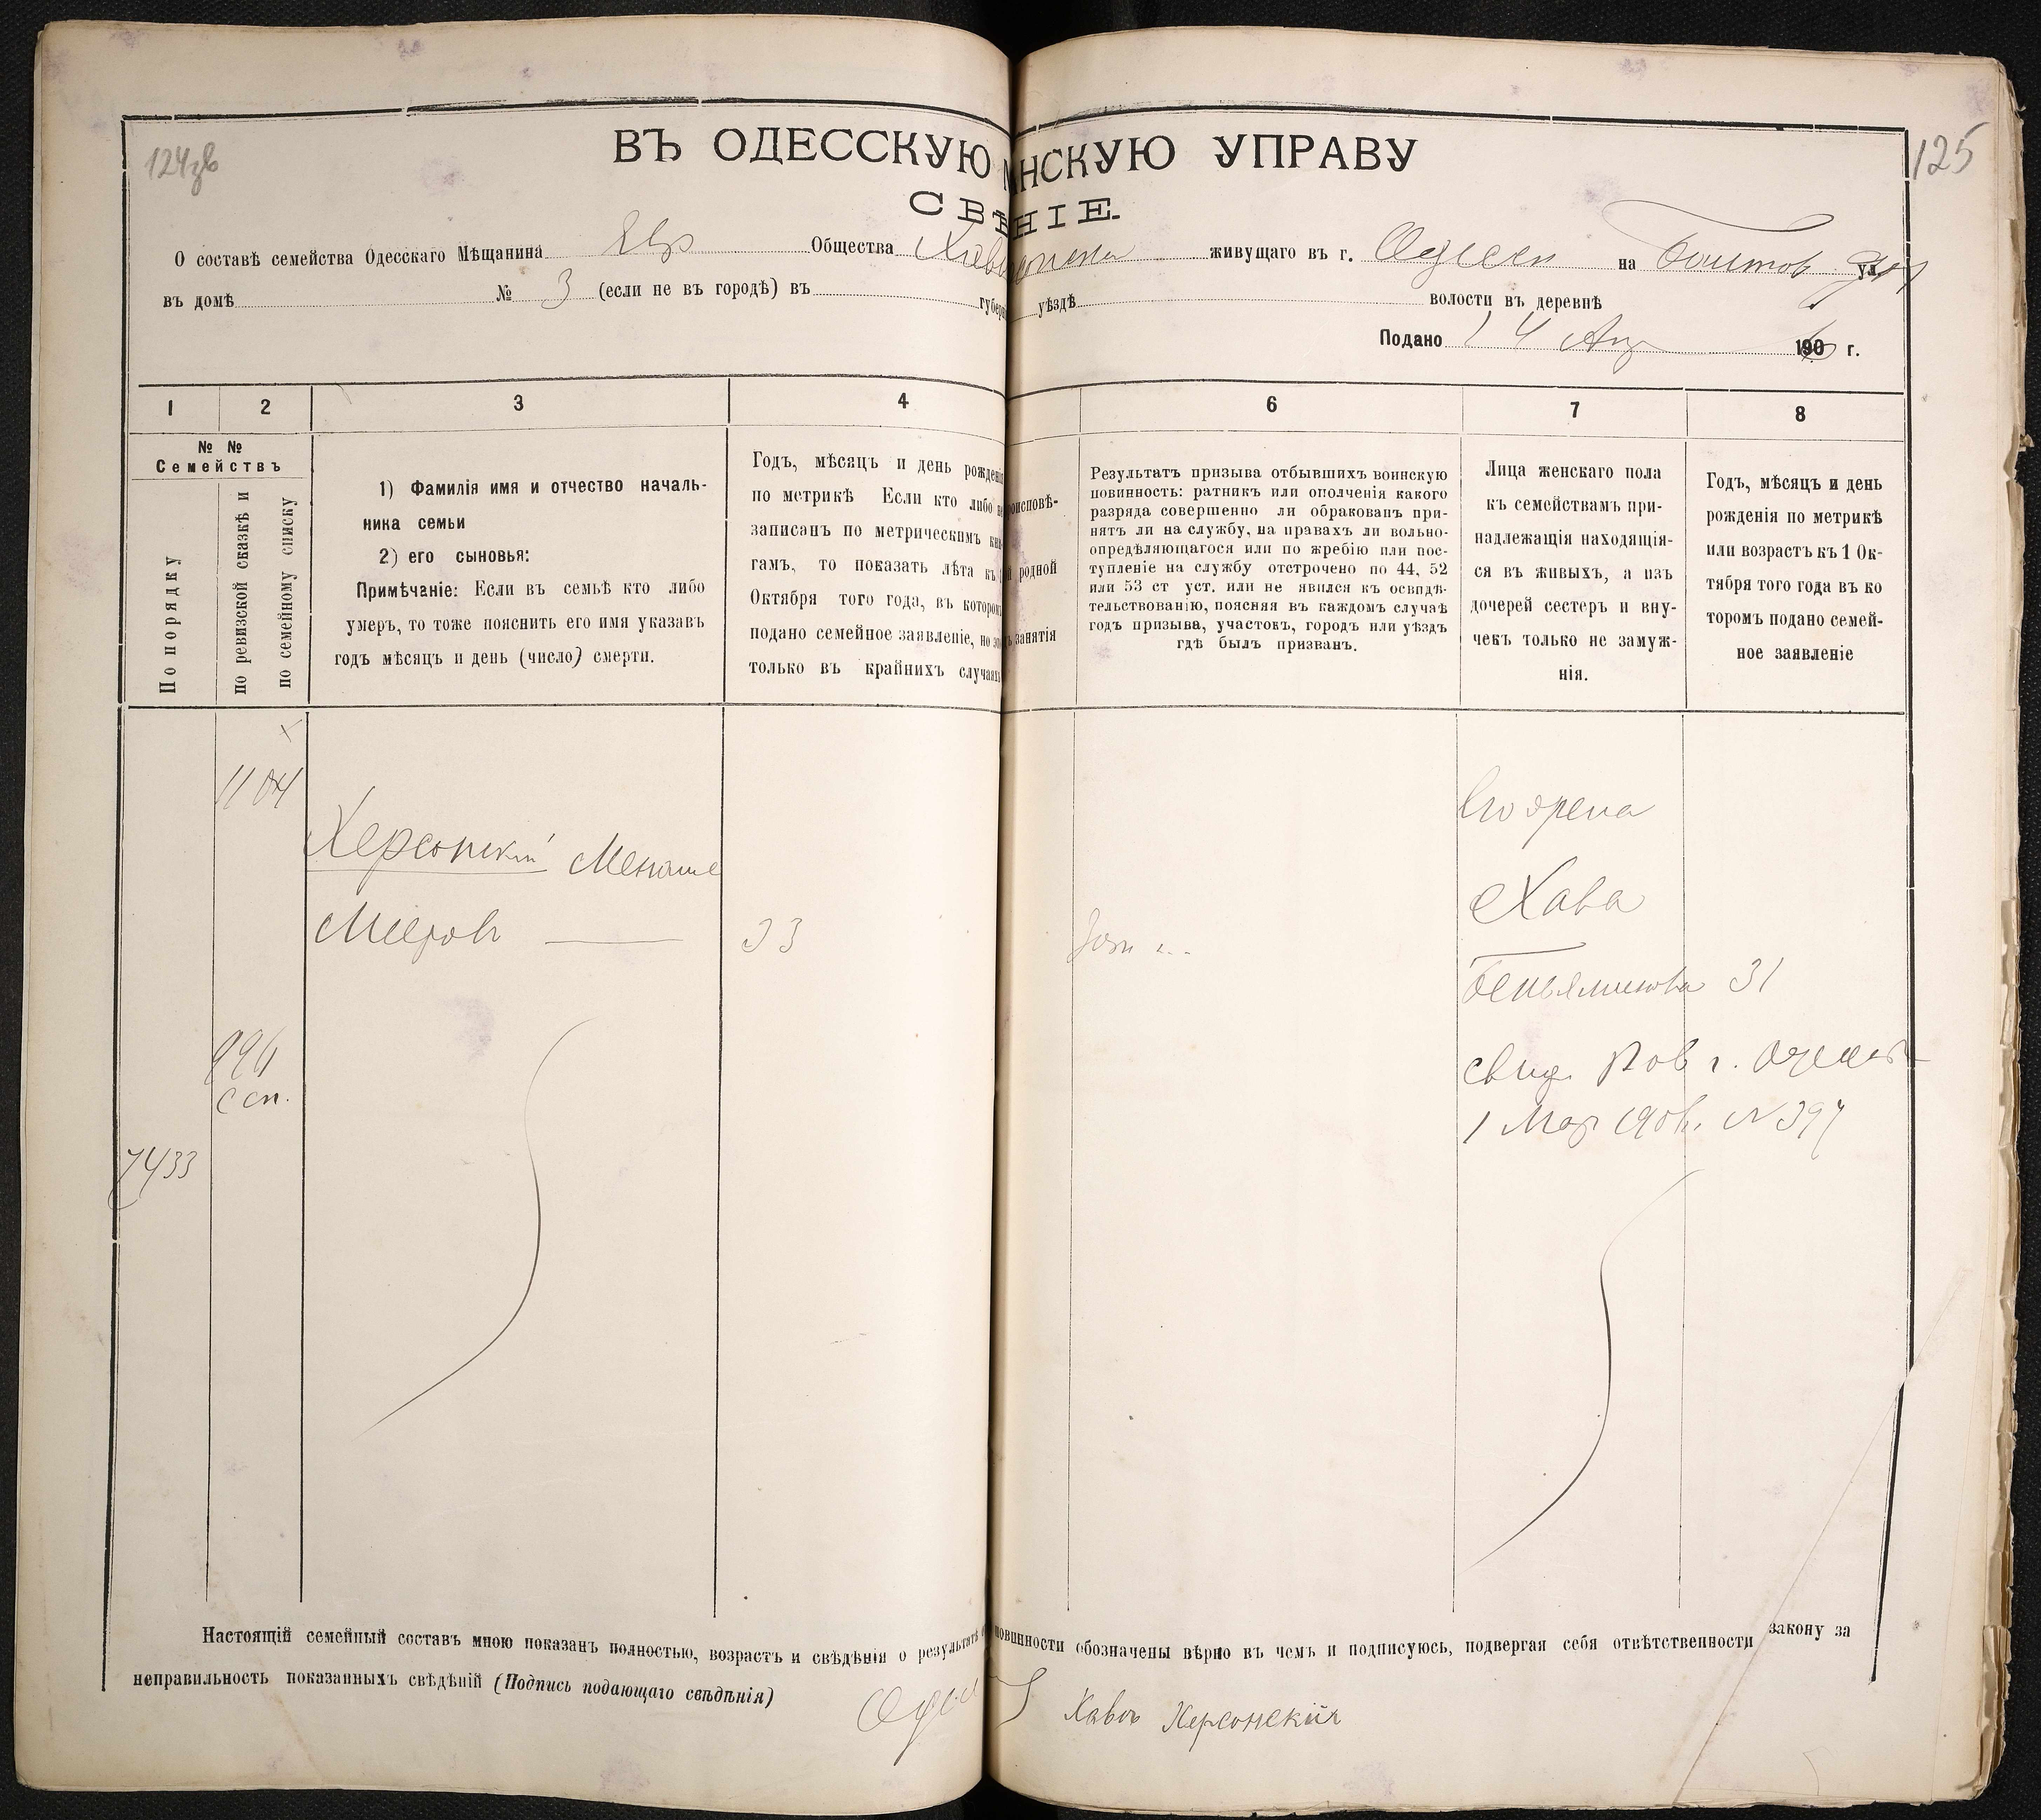 124зв
125
ВЪ ОДЕССКУЮ НСКУЮ УПРАВУ
СВѢ НІЕ.
О составѣ семейства Одесскаго Мѣщанина Евр Общества живущаго въ г. Одессы на ул.
въ домѣ № 3 (если не въ городѣ) въ губерн уѣздѣ волости въ деревнѣ
Подано 14 Апр 190 г.
1 2 3 4 6 7 8
№ №
Семействъ
По порядку
по ревизской сказкѣ и
по семейному списку
1) Фамилія имя и отчество началь-
ника семьи
2) его сыновья:
Примѣчаніе: Если въ семьѣ кто либо
умеръ, то тоже пояснить его имя указавъ
годъ мѣсяцъ и день (число) смерти.
Годъ, мѣсяцъ и день рожденія
по метрикѣ Если кто либо не
записанъ по метрическимъ кни
гамъ, то показать лѣта къ 1
Октября того года, въ котором
подано семейное заявленіе, но это
только въ крайнихъ случаяхъ
роисповѣ-
й родной
ъ занятія
Результатъ призыва отбывшихъ воинскую
повинность: ратникъ или ополченія какого
разряда совершенно ли обракованъ при-
нятъ ли на службу, на правахъ ли вольно-
опредѣляющагося или по жребію или пос-
тупленіе на службу отстрочено по 44, 52
или 53 ст уст. или не явился къ освидѣ-
тельствованію, поясняя въ каждомъ случаѣ
годъ призыва, участокъ, городъ или уѣздъ
гдѣ былъ призванъ.
Лица женскаго пола
къ семействамъ при-
надлежащія находящія-
ся въ живыхъ, а изъ
дочерей сестеръ и вну-
чекъ только не замуж-
нія.
Годъ, мѣсяцъ и день
рожденія по метрикѣ
или возрастъ къ 1 Ок-
тября того года въ ко
торомъ подано семей-
ное заявленіе
1104
Херсонскій Менаше
Мееровъ 33
996
с сп.
7433
Его жена
Хава
Беньяминова 31
свид. Рав г. Одессы
1 Мар 190 г. N 397
Настоящій семейный составъ мною показанъ полностью, возрастъ и свѣдѣнія о результатѣ повинности обозначены вѣрно въ чемъ и подписуюсь, подвергая себя отвѣтственности закону за
неправильность показанныхъ свѣдѣній (Подпись подающаго свѣдѣнія)
Хавъ Херсонскія